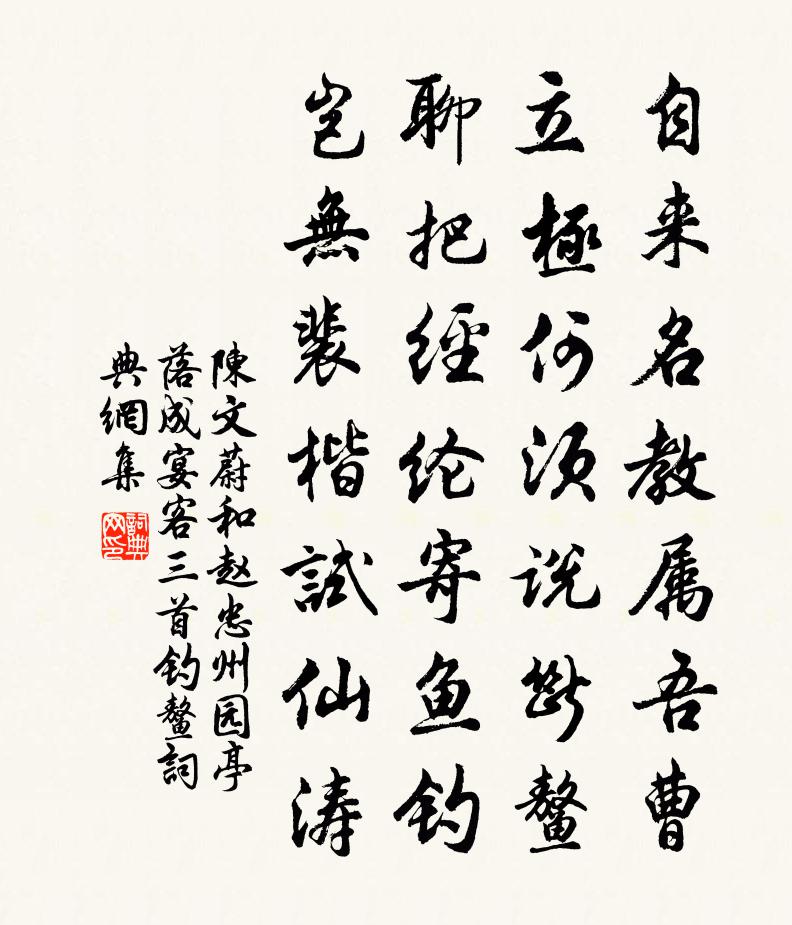 自来名教属吾曹
立極何须说斷鳌
聊把經纶寄鱼钓
岂無裴楷試仙涛
陳文蔚和赵忠州园亭
落成宴客三首钓鳌詞
典網集
詞典网印